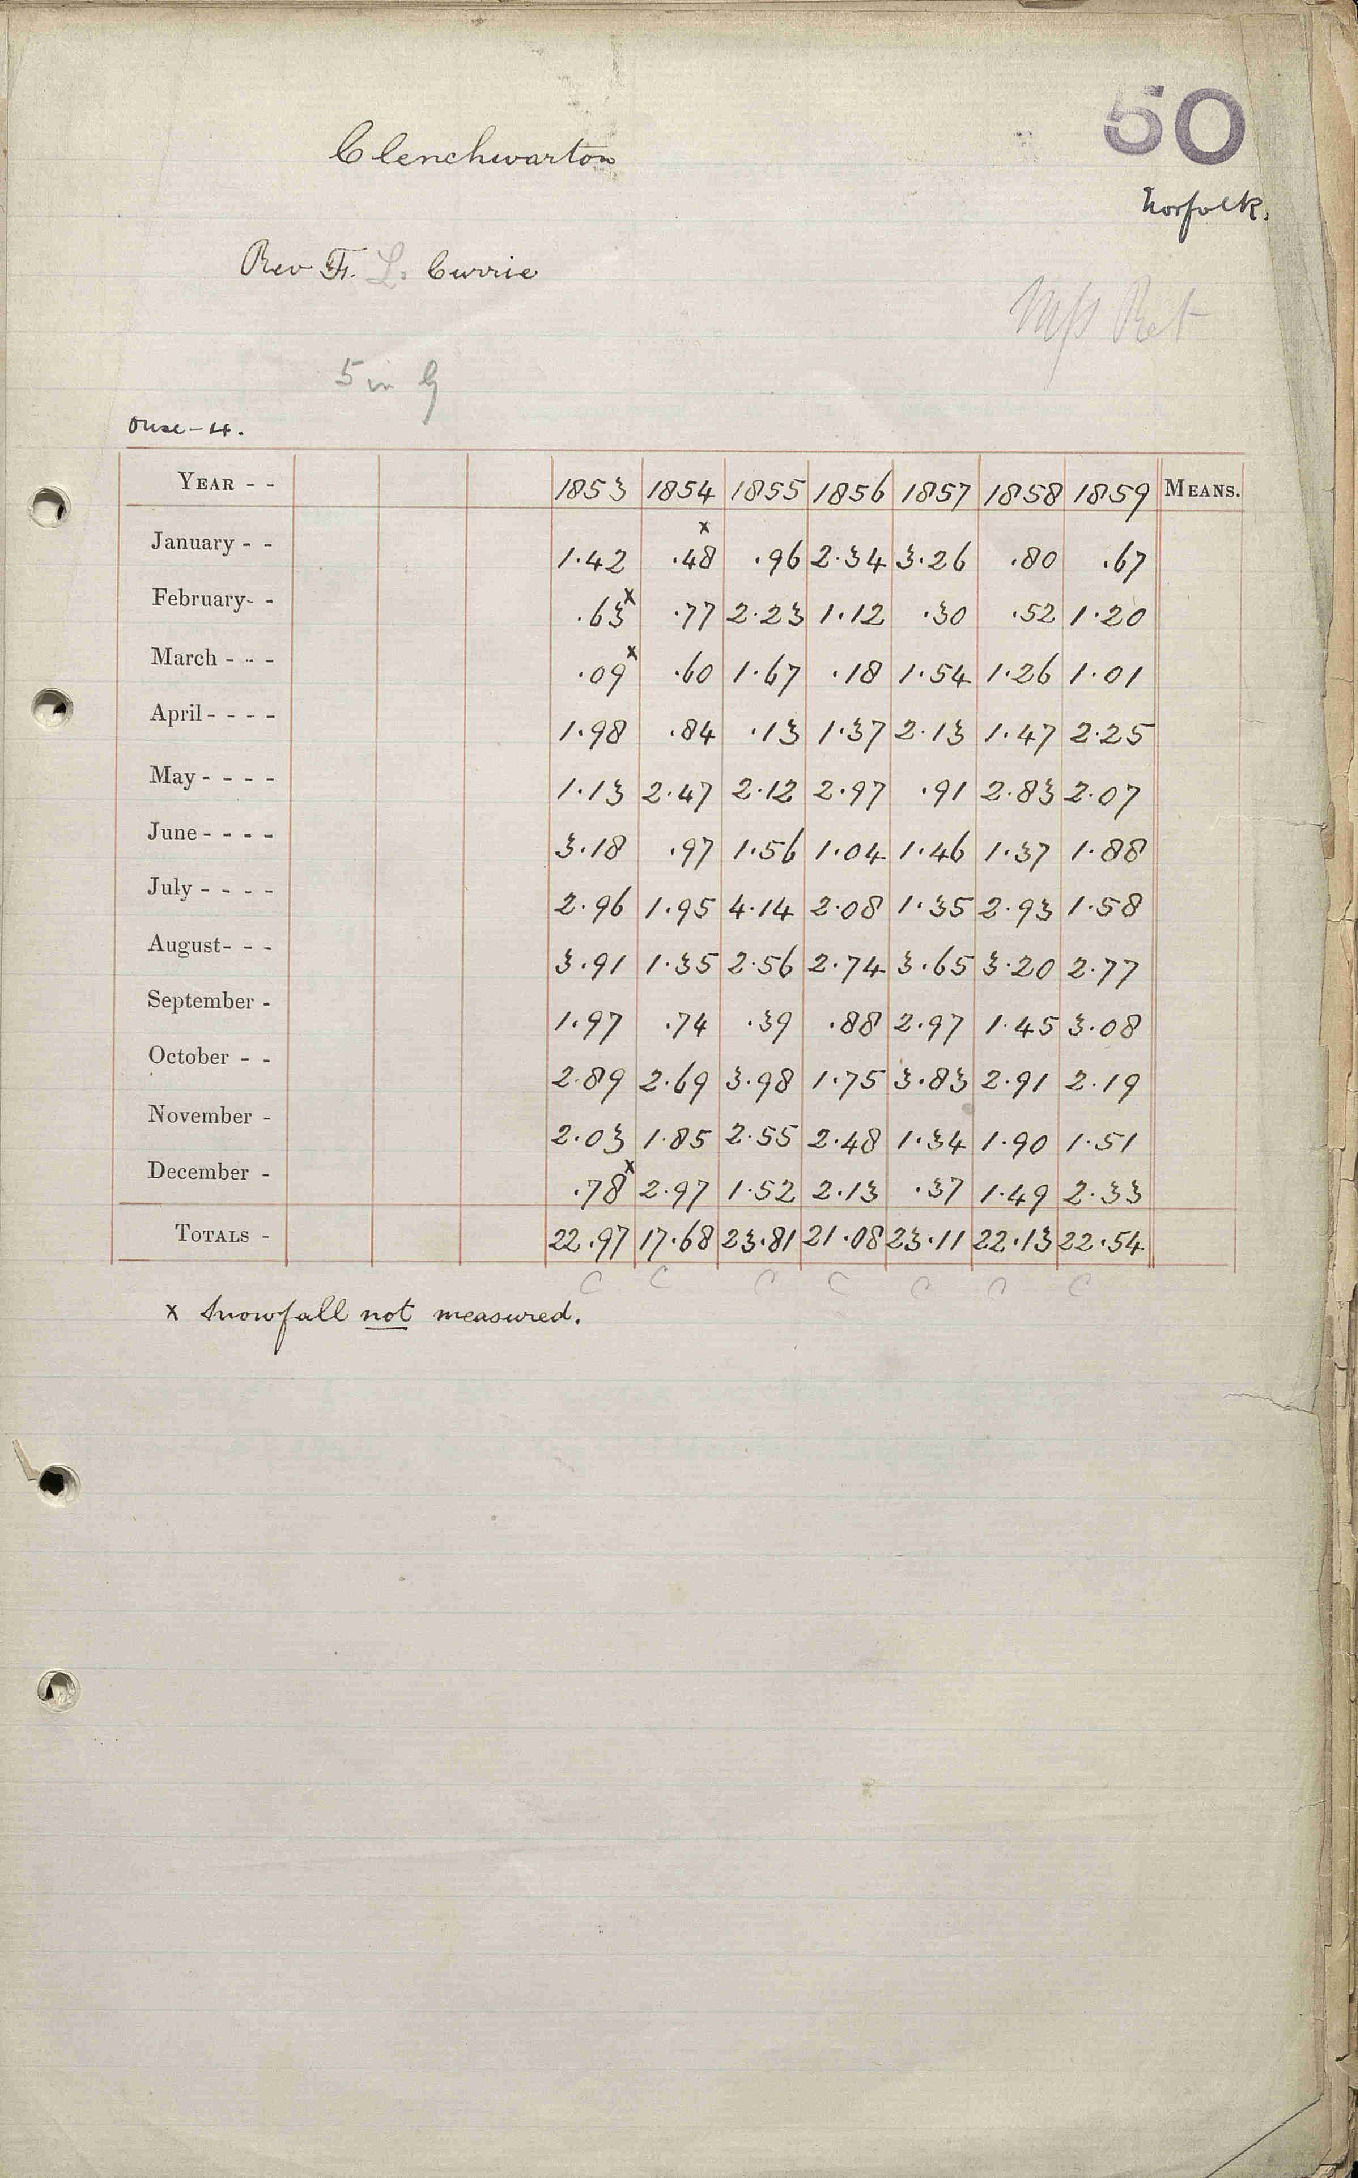 50
Clenchwarton
Norfolk.
Rev F. L. Currie
Mss Ret
5 in G
Ouse - 4.
YEAR - - 1853 1854 1855 1856 1857 1858 1859 MEANS.
January - - 1.42 .48x .96 2.34 3.26 .80 .67
February- - .63x .77 2.23 1.12 .30 .52 1.20
March - - - .09x .60 1.67 .18 1.54 1.26 1.01
April - - - - 1.98 .84 .13 1.37 2.13 1.47 2.25
May - - - - 1.13 2.47 2.12 2.97 .91 2.83 2.07
June - - - - 3.18 .97 1.56 1.04 1.46 1.37 1.88
July - - - - 2.96 1.95 4.14 2.08 1.35 2.93 1.58
August- - - 3.91 1.35 2.56 2.74 3.65 3.20 2.77
September - 1.97 .74 .39 .88 2.97 1.45 3.08
October - - 2.89 2.69 3.98 1.75 3.83 2.91 2.19
November - 2.03 1.85 2.55 2.48 1.34 1.90 1.51
December - .78x 2.97 1.52 2.13 .37 1.49 2.33
TOTALS - 22.97 17.68 23.81 21.08 23.11 22.13 22.54
C C C C C C C
x Snowfall not measured.